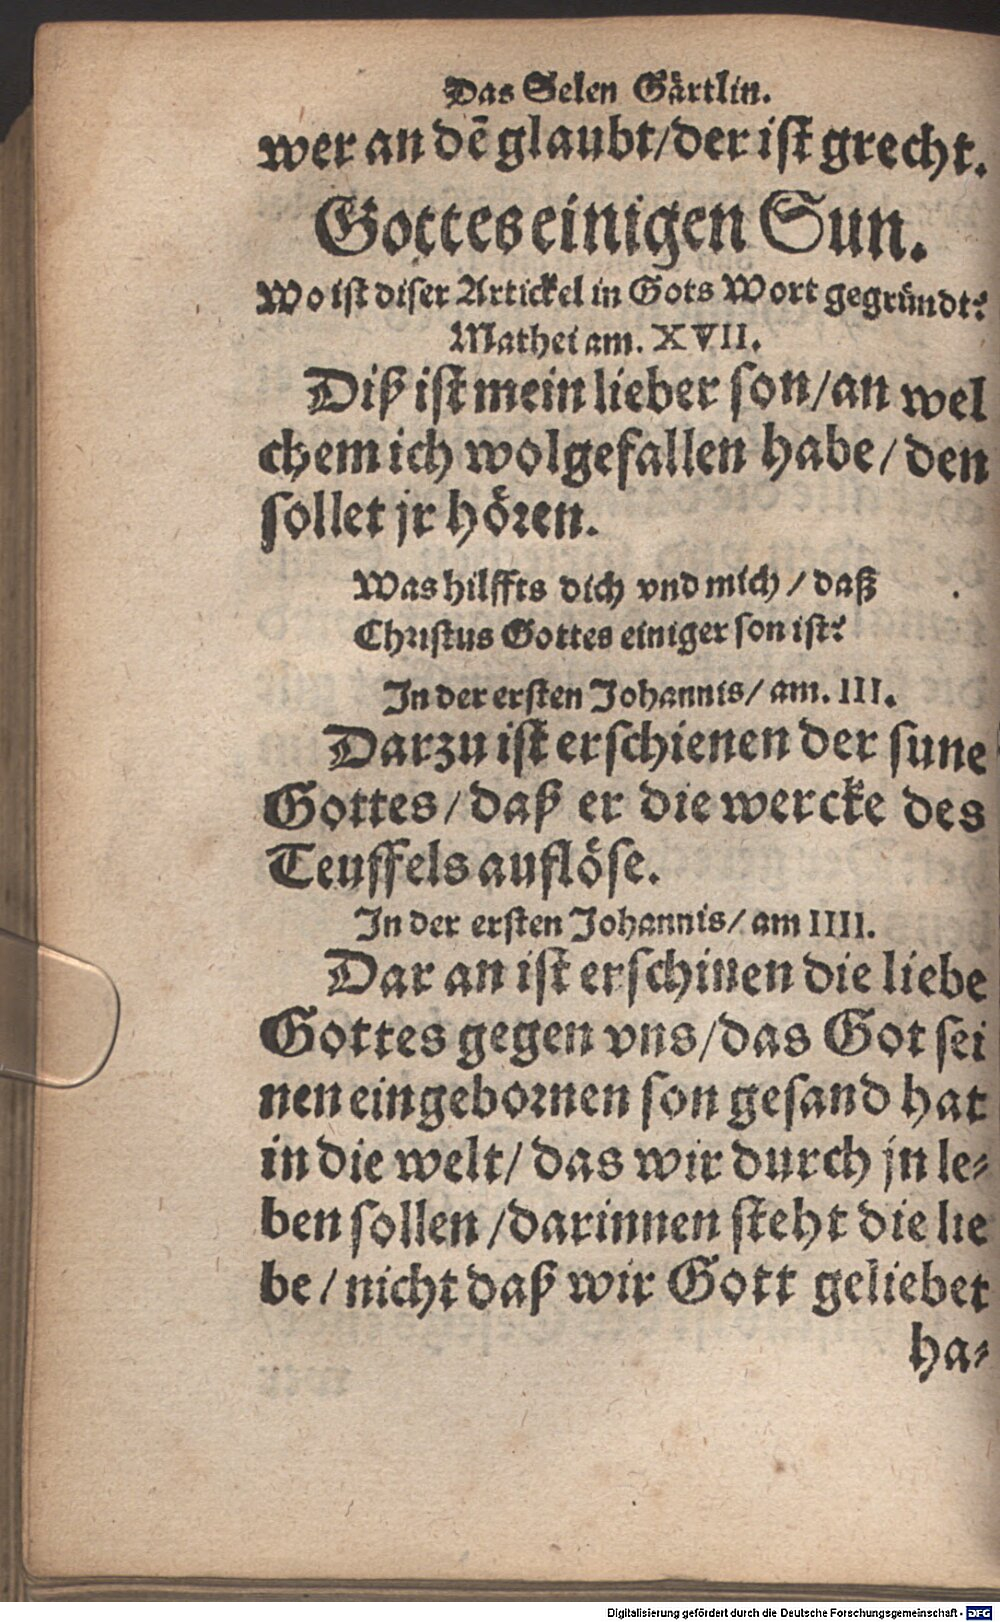 Das Selen Gärtlin.
wer an dē glaubt/der ist grecht.
Gottes einigen Sun.
Wo ist diser Artickel in Gots Wort gegründt?
Mathei am. XVII.
Diß ist mein lieber son/an wel
chem ich wolgefallen habe/den
sollet jr hören.
Was hilffts dich vnd mich/daß
Christus Gottes einiger son ist?
In der ersten Johannis/am. III.
Darzu ist erschienen der sune
Gottes/daß er die wercke des
Teuffels auflöse.
In der ersten Johannis/am IIII.
Dar an ist erschinen die liebe
Gottes gegen vns/das Got sei
nen eingebornen son gesand hat
in die welt/das wir durch jn le⸗
ben sollen/darinnen steht die lie
be/nicht daß wir Gott geliebet
ha⸗
Digitalisierung gefördert durch die Deutsche Forschungsgemeinschaft - DFG